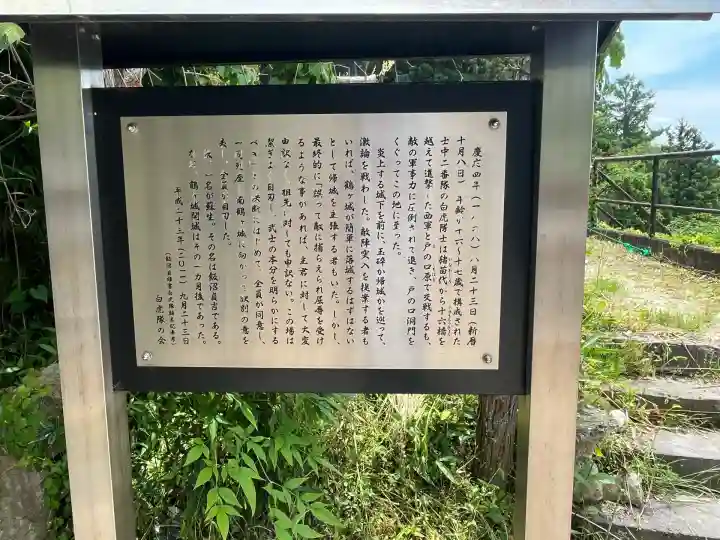 慶応四年(一八六八)八月二十三日(新暦
十月八日)年齢十六〜十七歳で構成された
士中二番隊の白虎隊士は猪苗代から十六橋を
越えて進撃した西軍と戸の口原で交戦するも、
敵の軍事力に圧倒されて退き、戸の口洞門を
くぐってこの地に至った。
炎上する城下を前に、玉砕か帰城かを巡って、
激論を戦わした。敵陣突入を提案する者も
いれば、鶴ヶ城が簡単に落城するはずはない
として帰城を主張する者もいた。しかし、
最終的に「誤って敵に捕らえられ屈辱を受け
るような事があれば、主君に対して大変
申訳なく、祖先に対しても申訳ない。この場は
潔ぎよく自刃し、武士の本分を明らかにする
べき」との決断にはじめて、全員が同意し、
一同列座、南鶴ヶ城に向かって訣別の意を
表し、全員が自刃した。
一名が蘇生。その名は飯沼貞吉である。
なお、鶴ヶ城開城はその一カ月後であった。
平成二十三年(二〇一一)九月二十三日
白虎隊の会